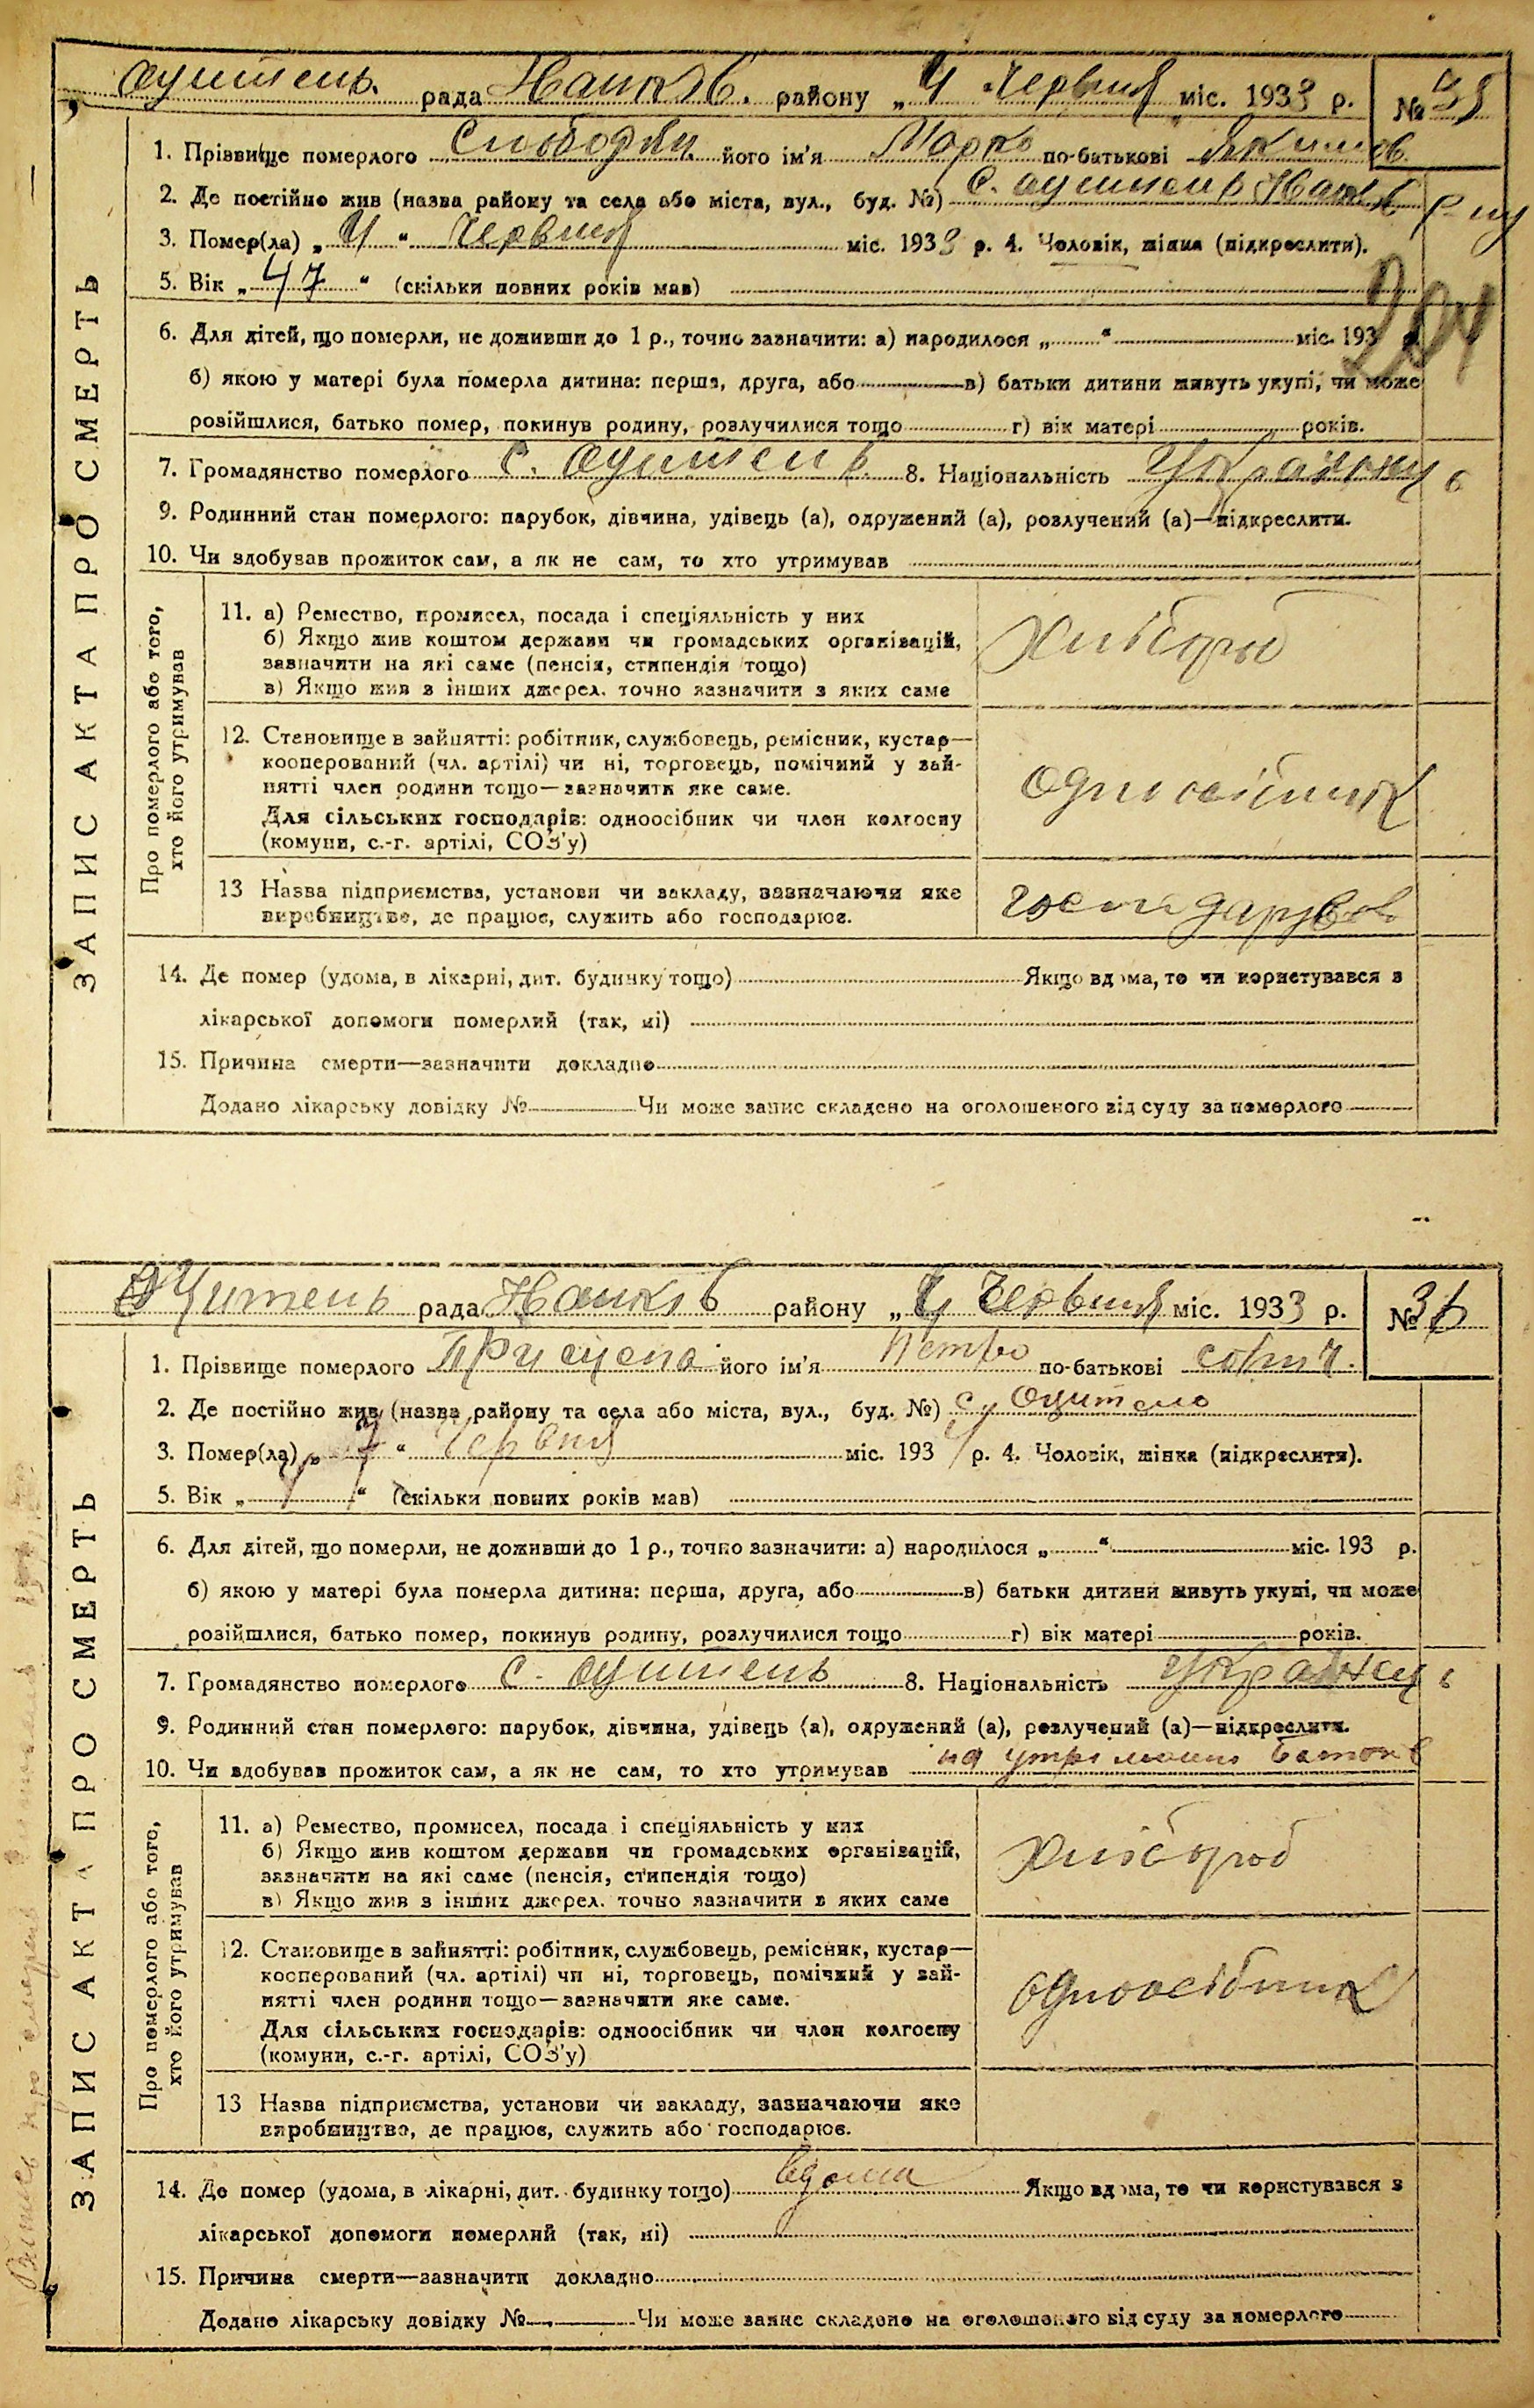 Оцитень. рада Нашків. району „ 4 Червня міс. 1933 р. № 35
1. Прізвище померлого Слободян його ім'я Марко по-батькові Якимів
2. Де постійно жив (назва району та села або міста, вул., буд. №) с. Оцитень
3. Помер(ла) „ 4 “ Червня міс. 1933 р. 4. Чоловік, жінка (підкреслити).
204
5. Вік „ 47 “ (скільки повних років мав)
6. Для дітей, що померли, не доживши до 1 р., точно зазначити: а) народилося „ “ міс. 193 р.
б) якою у матері була померла дитина: перша, друга, або в) батьки дитини живуть укупі, чи може
розійшлися, батько помер, покинув родину, розлучилися тощо г) вік матері років.
7. Громадянство померлого с. Оцитень 8. Національність Українець
9. Родинний стан померлого: парубок, дівчина, удівець (а), одружений (а), розлучений (а)—підкреслити.
10. Чи здобував прожиток сам, а як не сам, то хто утримував
ЗАПИС АКТА ПРО СМЕРТЬ
Про померлого або того,
хто його утримував
11. а) Ремество, промисел, посада і спеціяльність у них
б) Якщо жив коштом держави чи громадських організацій,
зазначити на які саме (пенсія, стипендія тощо)
в) Якщо жив з інших джерел, точно зазначити з яких саме
Хлібороб
12. Становище в зайнятті: робітник, службовець, ремісник, кустар—
кооперований (чл. артілі) чи ні, торговець, помічний у зай-
нятті член родини тощо—зазначити яке саме.
Для сільських господарів: одноосібник чи член колгоспу
(комуни, с.-г. артілі, СОЗ'у)
Одноосібник
13 Назва підприємства, установи чи закладу, зазначаючи яке
виробництво, де працює, служить або господарює.
господарував
14. Де помер (удома, в лікарні, дит. будинку тощо) Якщо вдома, то чи користувався з
лікарської допомоги померлий (так, ні)
15. Причина смерти—зазначити докладно
Додано лікарську довідку № Чи може запис складено на оголошеного від суду за померлого
Оцитень рада Нашків району „ 4 Червня міс. 1933 р. № 36
1. Прізвище померлого його ім'я Петро по-батькові
2. Де постійно жив (назва району та села або міста, вул., буд. №) с. Оцитень
3. Помер(ла) „ “ Червня міс. 193 р. 4. Чоловік, жінка (підкреслити).
5. Вік „ “ (скільки повних років мав)
6. Для дітей, що померли, не доживши до 1 р., точно зазначити: а) народилося „ “ міс. 193 р.
б) якою у матері була померла дитина: перша, друга, або в) батьки дитини живуть укупі, чи може
розійшлися, батько помер, покинув родину, розлучилися тощо г) вік матері років.
7. Громадянство померлого с. Оцитень 8. Національність Українець
9. Родинний стан померлого: парубок, дівчина, удівець (а), одружений (а), розлучений (а)—підкреслити.
10. Чи здобував прожиток сам, а як не сам, то хто утримував на
ЗАПИС АКТА ПРО СМЕРТЬ
Про померлого або того,
хто його утримував
11. а) Ремество, промисел, посада і спеціяльність у них
б) Якщо жив коштом держави чи громадських організацій,
зазначити на які саме (пенсія, стипендія тощо)
в) Якщо жив з інших джерел, точно зазначити з яких саме
Хлібороб
12. Становище в зайнятті: робітник, службовець, ремісник, кустар—
кооперований (чл. артілі) чи ні, торговець, помічний у зай-
нятті член родини тощо—зазначити яке саме.
Для сільських господарів: одноосібник чи член колгоспу
(комуни, с.-г. артілі, СОЗ'у)
одноосібник
13 Назва підприємства, установи чи закладу, зазначаючи яке
виробництво, де працює, служить або господарює.
14. Де помер (удома, в лікарні, дит. будинку тощо) вдома Якщо вдома, то чи користувався з
лікарської допомоги померлий (так, ні)
15. Причина смерти—зазначити докладно
Додано лікарську довідку № Чи може запис складено на оголошеного від суду за померлого